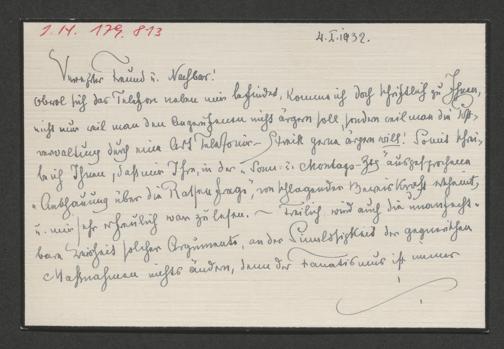 I.N. 179.813
4.I.1932.
Verehrter Freund u. Nachbar!
Obwol sich das Telefon neben mir befindet, komme ich doch schriftlich zu Ihnen,
nicht nur weil man den nicht ärgern soll, sondern weil man die Post-
verwaltung durch eine Art Telefonier-Streik gerne ärgern will! Somit schrei-
be ich Ihnen, daß mir Ihre, in der „Sonn- u. Montags-Ztg" ausgesprochene
„Anschauung über die Rassenfrage", von schlagender Beweiskraft scheint,
u. mir sehr erfreulich war zu lesen. – Freilich wird auch die
bare Weisheit solcher Argumente, an der Sinnlosigkeit der gegnerischen
Maßnahmen nichts ändern, denn der Fanatismus ist immer